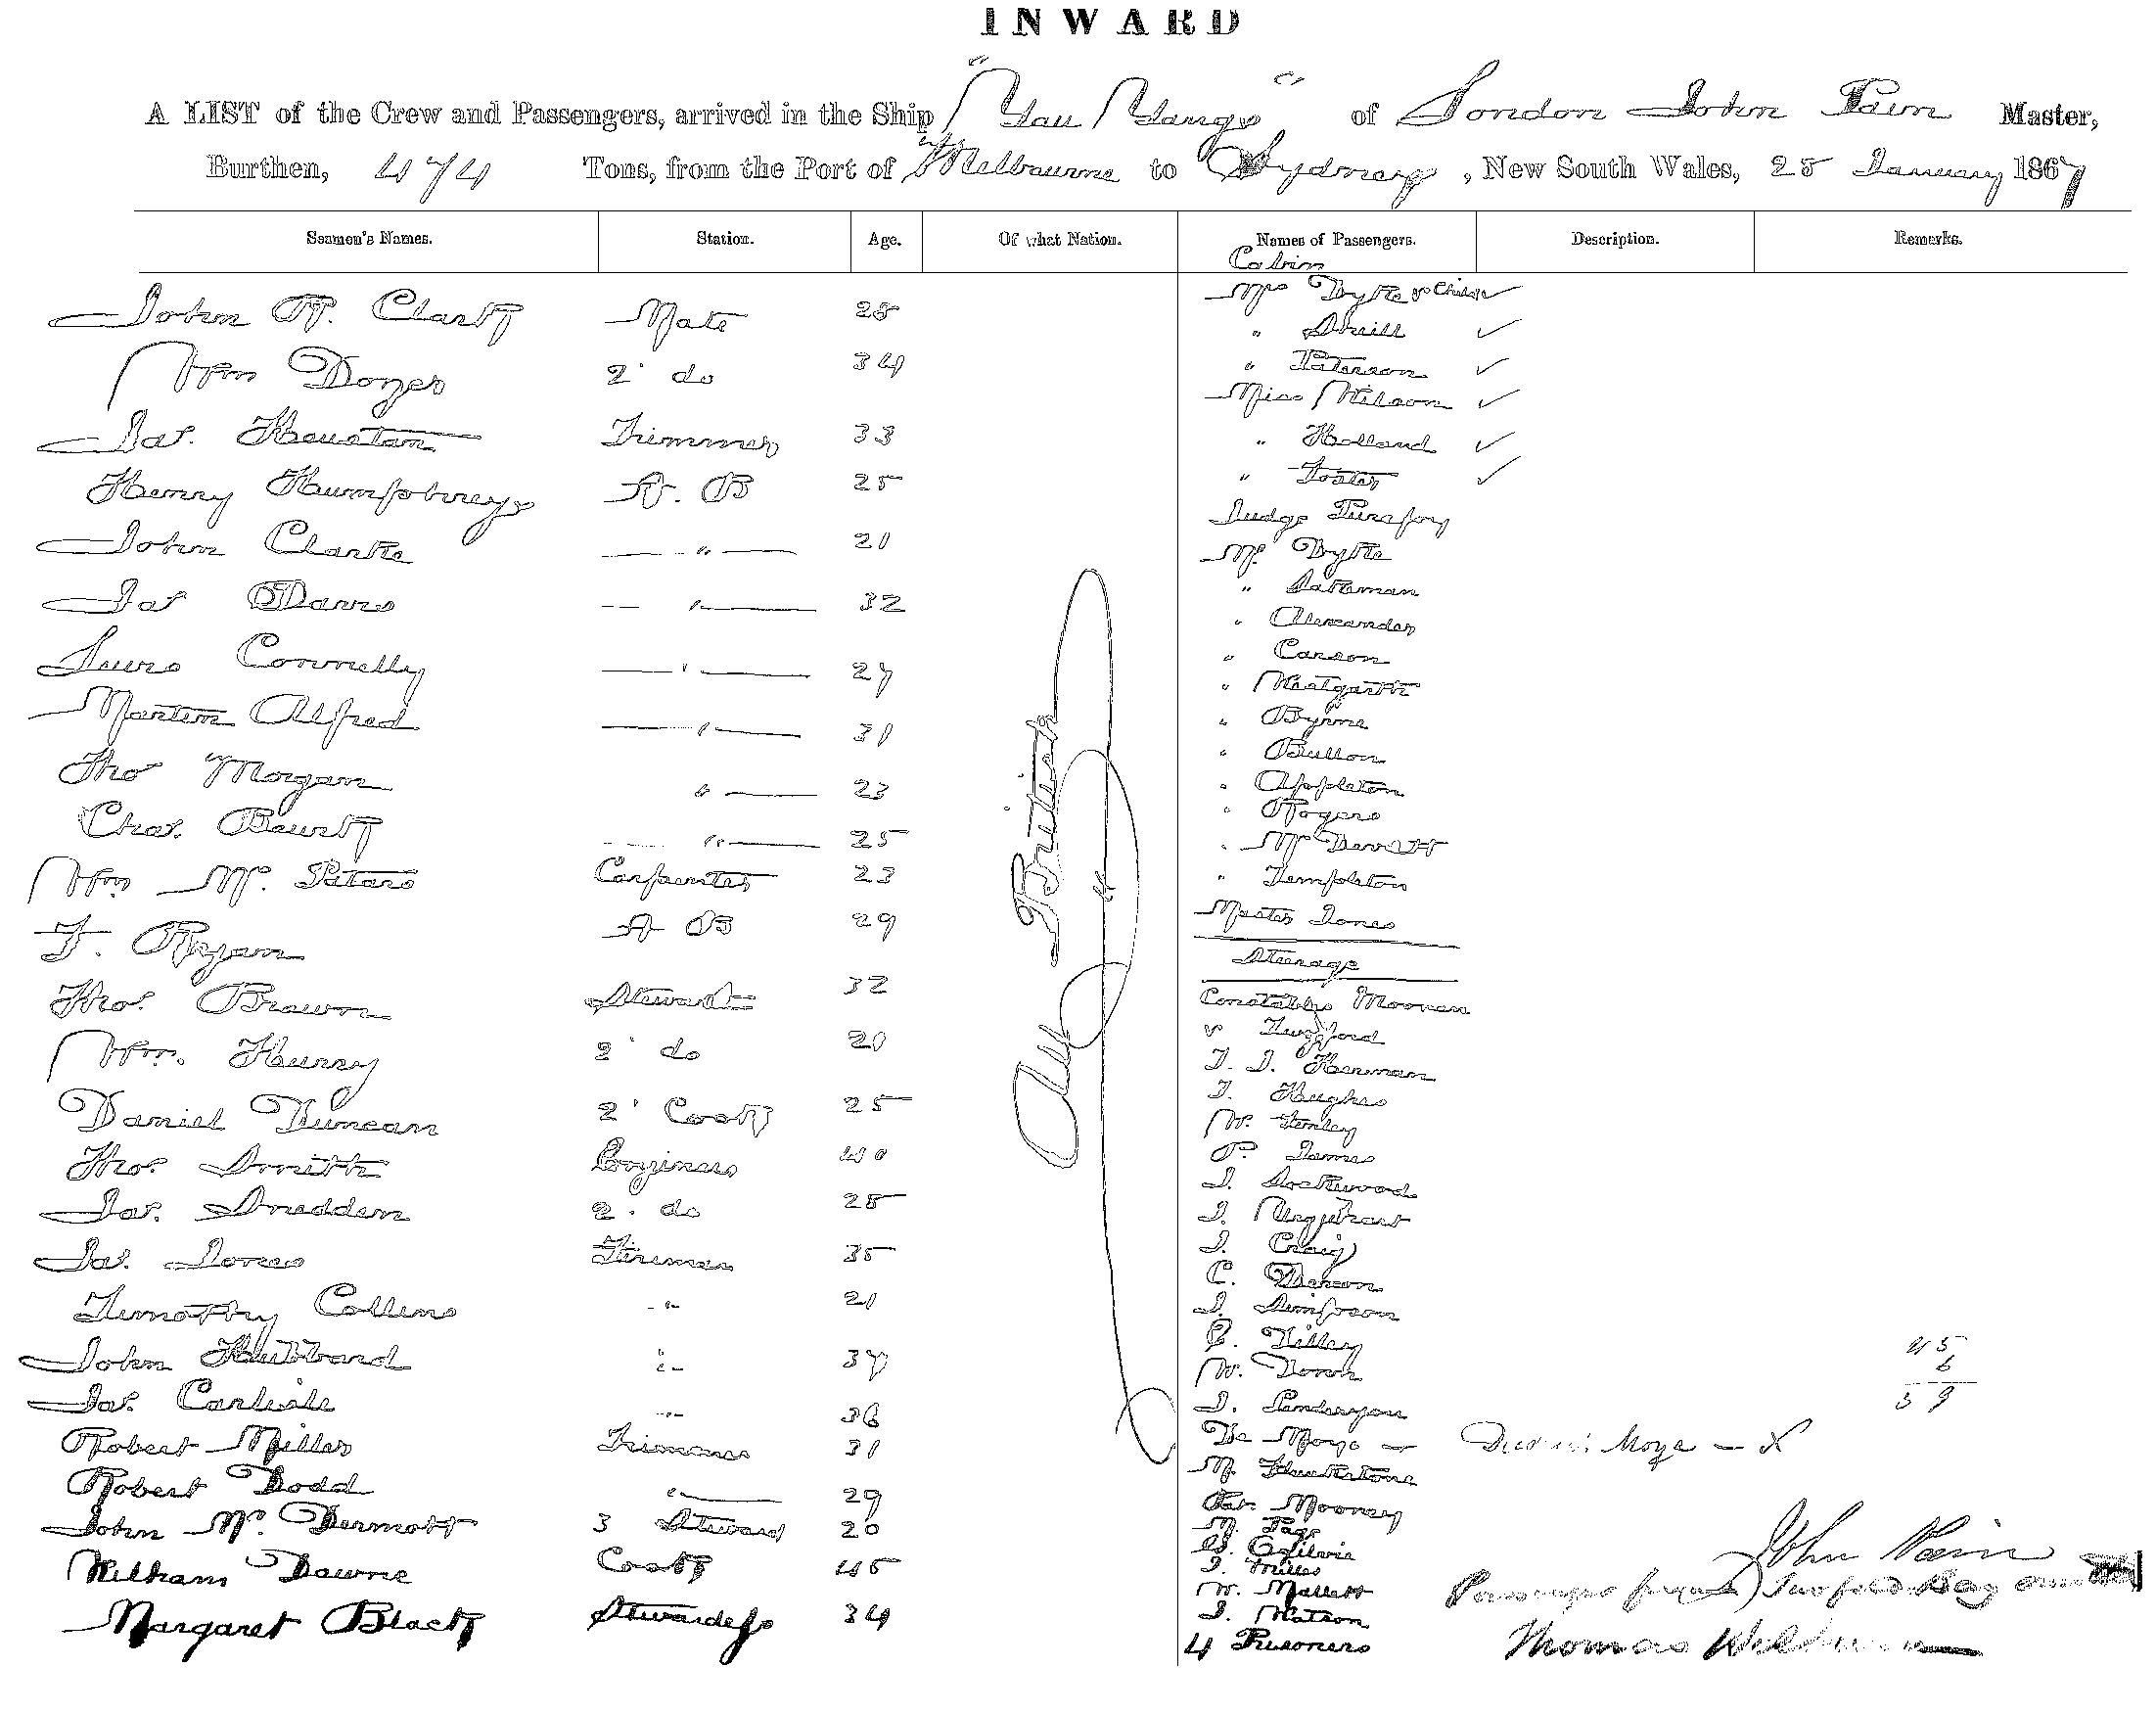 INWARD
A LIST of the Crew and Passengers, arrived in the Ship "You Yangs" of London John Pain Master,
Burthen, 474 Tons, from the Port of Melbourne to Sydney, New South Wales, 25 January 1867
Seamen's Names. Station. Age. Of what Nation. Names of Passengers. Description. Remarks.
John R. Clark Mate 28
Wm 2 do 34
Jas. Houston Trimmer 33
Henry Humphreys A. B 25
John Clarke " 21
Jas Davis " 32
Connelly " 27
Martin Alfred " 31
Thos Morgan " 23
Chas. " 25
Wm Mc. Carpenter 23
F. Ryan A B 29
Thos. Brown Steward 32
Wm. Hurry 2 do 21
Daniel Duncan 2 Cook 25
Thos. Smith Engineer 40
Jas. Snedden 2. do 28
Jas. Jones Fireman 35
Timothy Collins " 21
John Hubbard " 37
Jas. Carlisle " 36
Robert Miller Trimmer 31
Robert Dodd " 29
John Mc. Dermott 3 Steward 20
William Dawne Cook 45
Margaret Black Stewardess 34
All British
Cabin
Mrs Dyke & Child
"
" Paterson
Miss Wilson
" Holland
" Foster
Judge
Mr. Dyke
" Bateman
" Alexander
" Carson
" Westgarth
" Byrne
" Bullon
" Appleton
" Rogers
" Mc Devitt
" Templeton
Master Jones
Steerage
Constable Moonan
"
T. J. Herman
T. Hughes
W.
P. James
J. Lockwood
J. Urquhart
J. Craig
C. Deacon
J. Simpson
C. Tilley
W. Down
J.
De Moya
M.
Pat. Mooney
M. Page
G. Ogilvie
J. Miller
W. Mallett
J. Watson
4 Prisoners
45
6
59
Moya — X
John Pain
Passengers Twofold Bay
Thomas